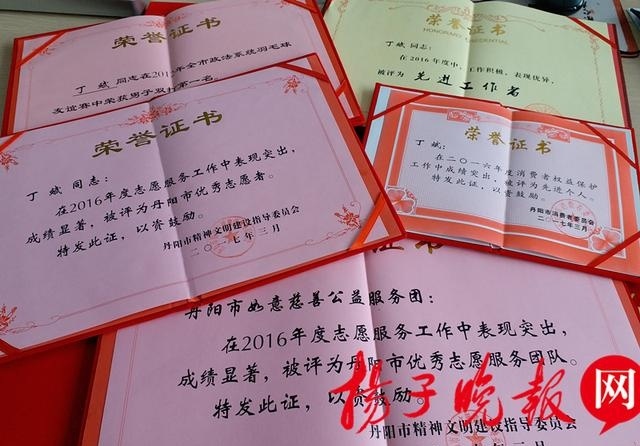 荣誉证书
丁斌 同志在201 年全市政法系统羽毛球
友谊赛中荣获男子双打第一名。
荣誉证书
HONORARY CREDENTIAL
丁斌 同志:
在2016年度中,工作积极,表现优异,
被评为 先进工作者
荣誉证书
丁斌 同志:
在2016年度志愿服务工作中表现突出,
成绩显著,被评为丹阳市优秀志愿者。
特发此证,以资鼓励。
丹阳市精神文明建设指导委员会
二〇一七年三月
荣誉证书
丁斌:
在二〇一六年度消费者权益保护
工作中成绩突出,被评为先进个人。
特发此证,以资鼓励。
丹阳市消费者委员会
二〇一七年三月
证书
丹阳市如意慈善公益服务团:
在2016年度志愿服务工作中表现突出,
成绩显著,被评为丹阳市优秀志愿服务团队。
特发此证,以资鼓励。
丹阳市精神文明建设指导委员会
扬子晚报网